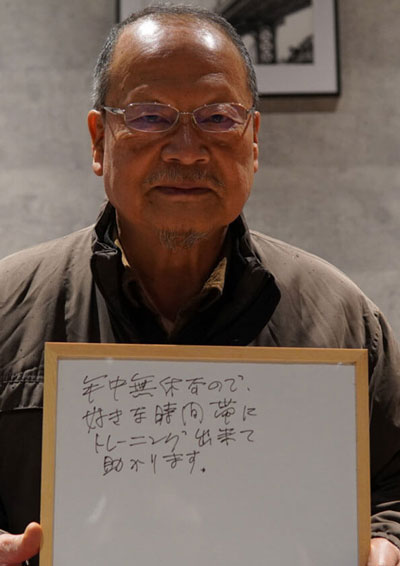 年中無休なので、
好きな時間帯に
トレーニング出来て
助かります。